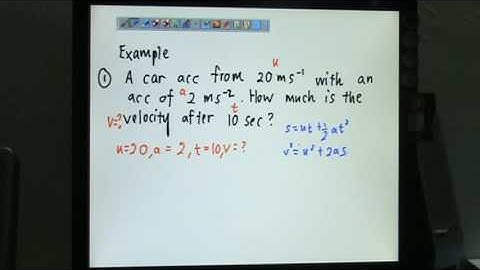 Example
u
① A car acc from 20 ms⁻¹ with an
a t
acc of 2 ms⁻². How much is the
v=? velocity after 10 sec?
s=ut+½at²
u=20, a=2, t=10, v=?
v²=u²+2as